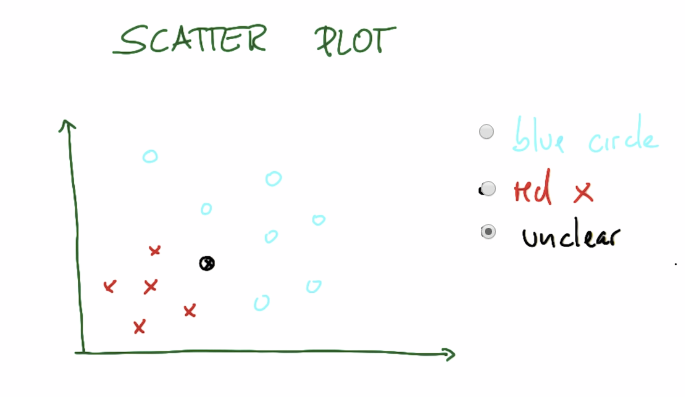 SCATTER PLOT
blue circle
red x
unclear